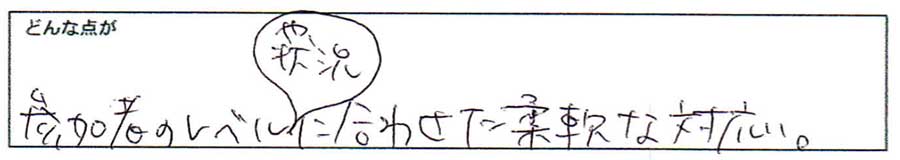 どんな点が
参加者のレベルや、状況に合わせた柔軟な対応。